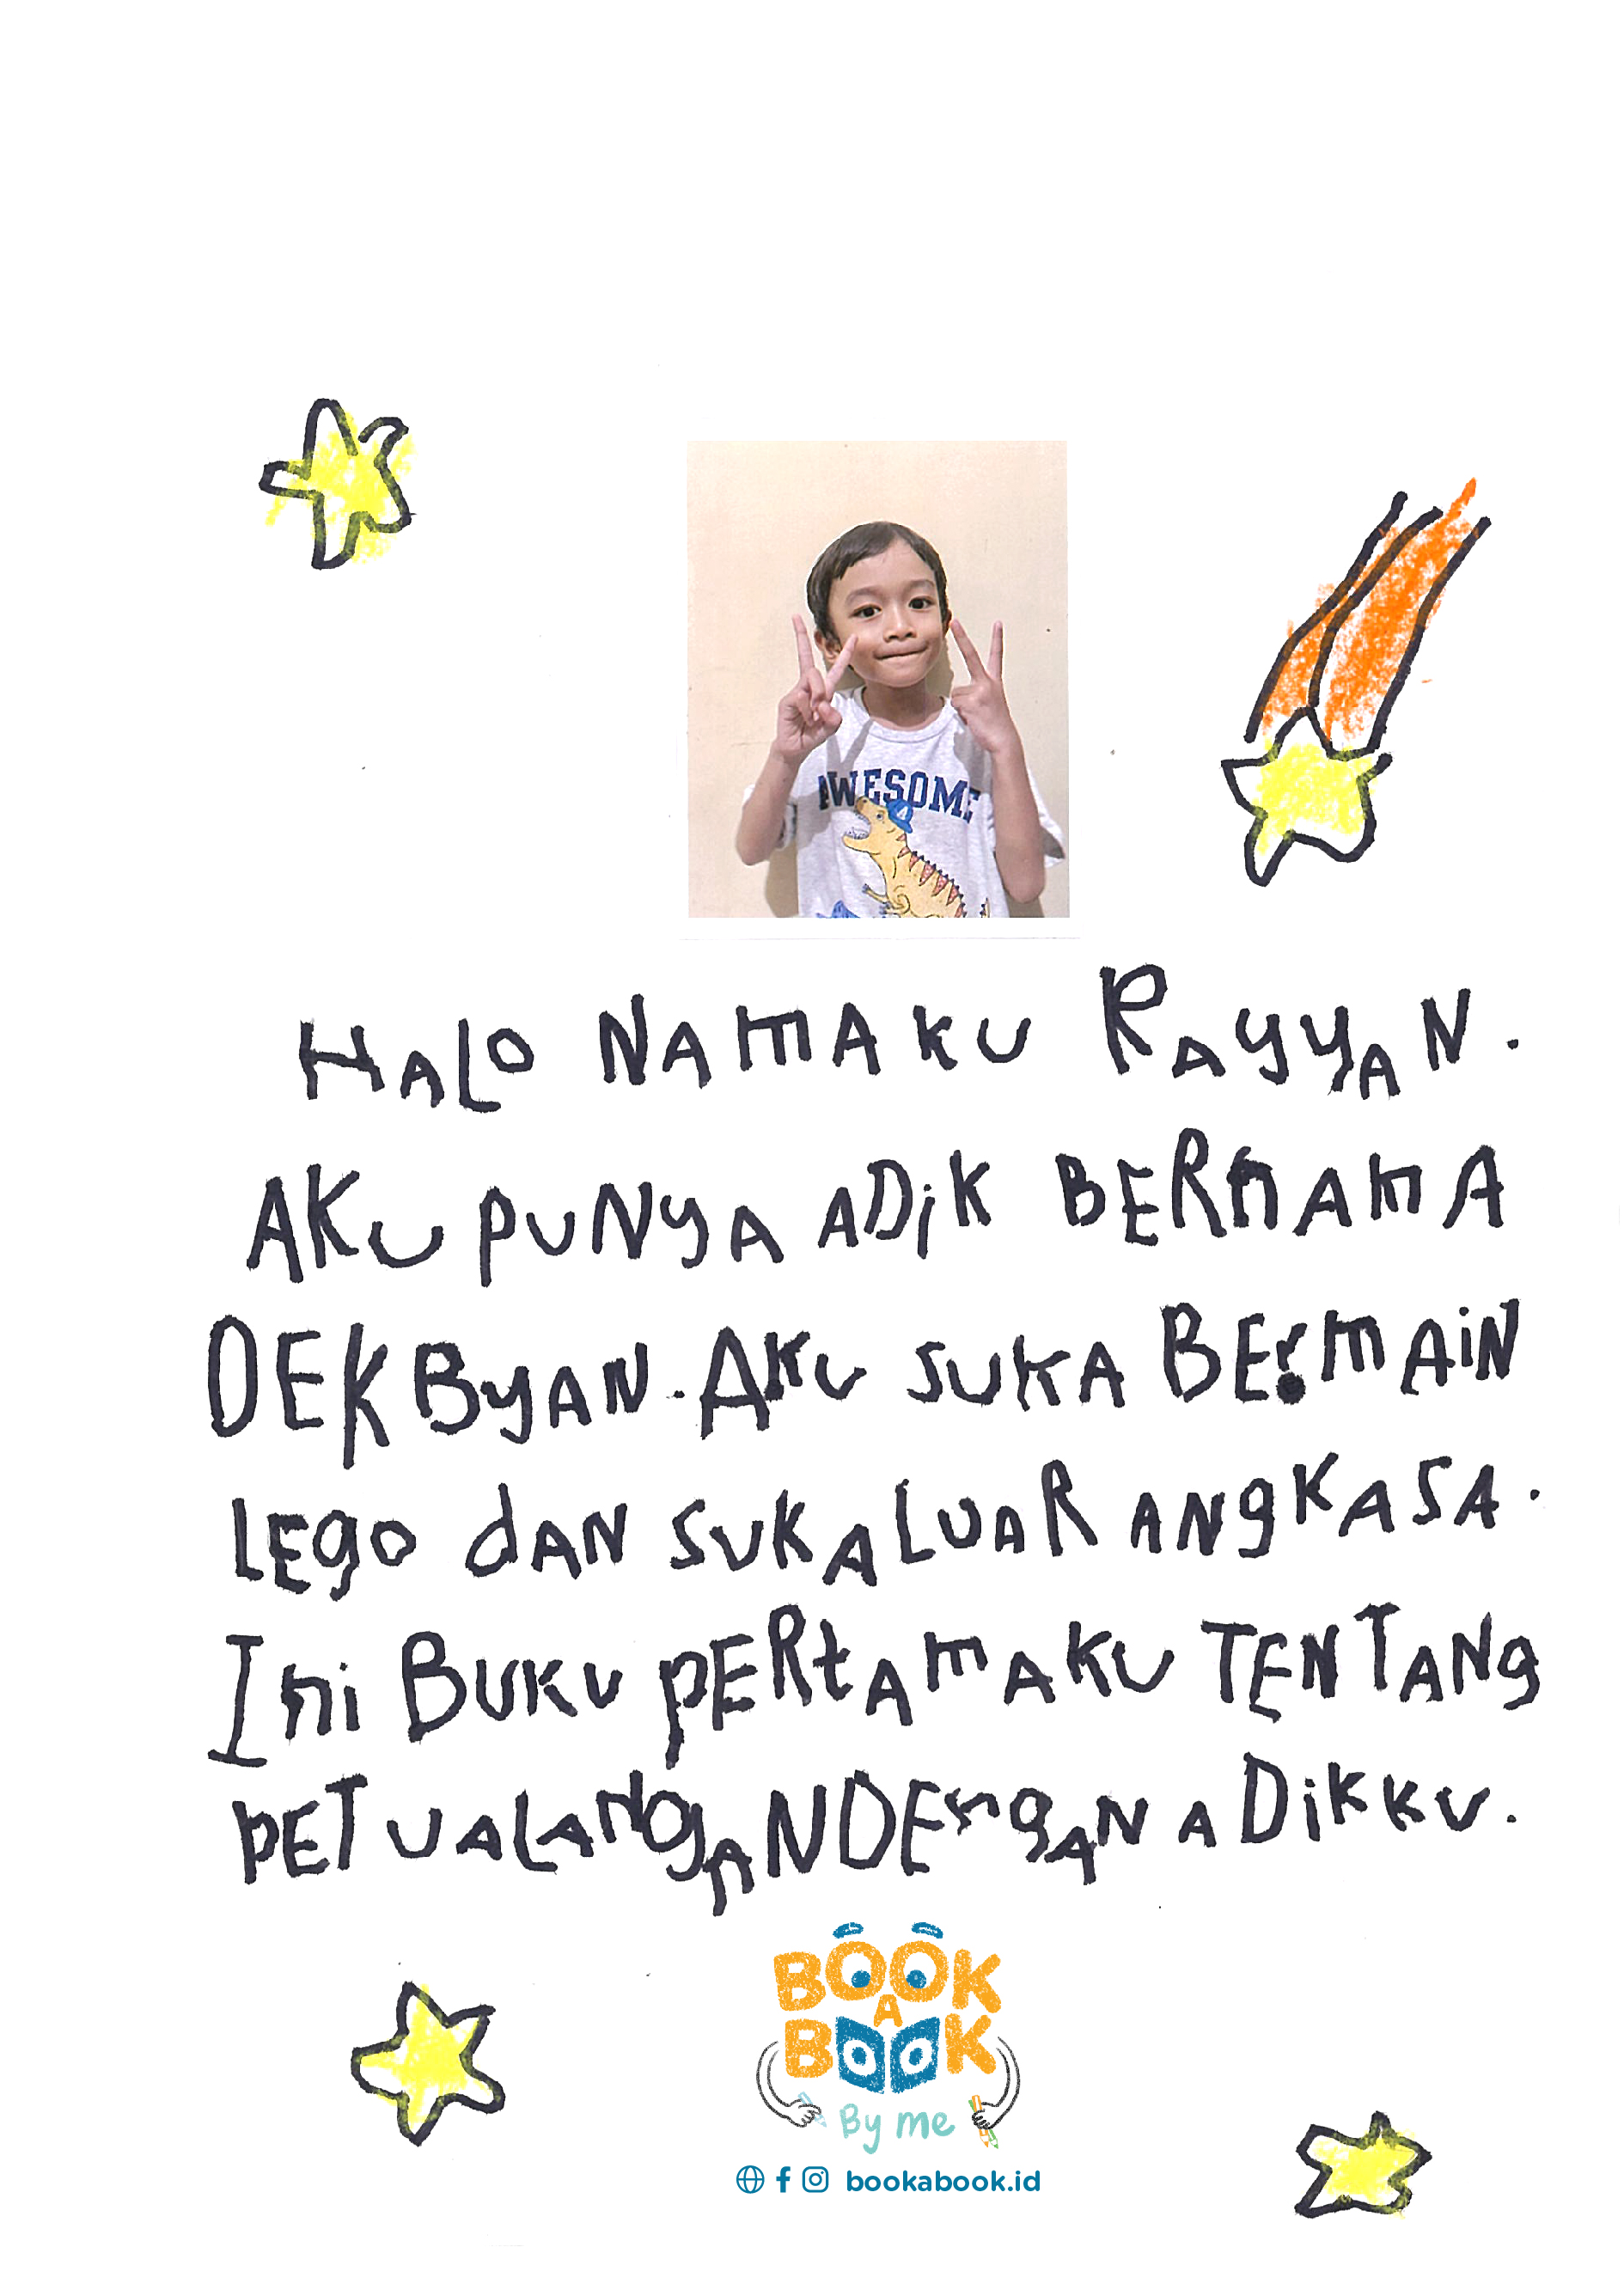 AWESOME
A
HALO NAMAKU RAYYAN.
AKU PUNYA ADiK BERNAMA
DEK BYAN. AKU SUKA BERMAiN
LEgO dAN SUKA LUAR ANgKASA.
Ini BUKU PERtAMAKU TENTANg
PETUALANgAN DENgAN ADiKKU.
BOOK
A
BOOK
By me
bookabook.id